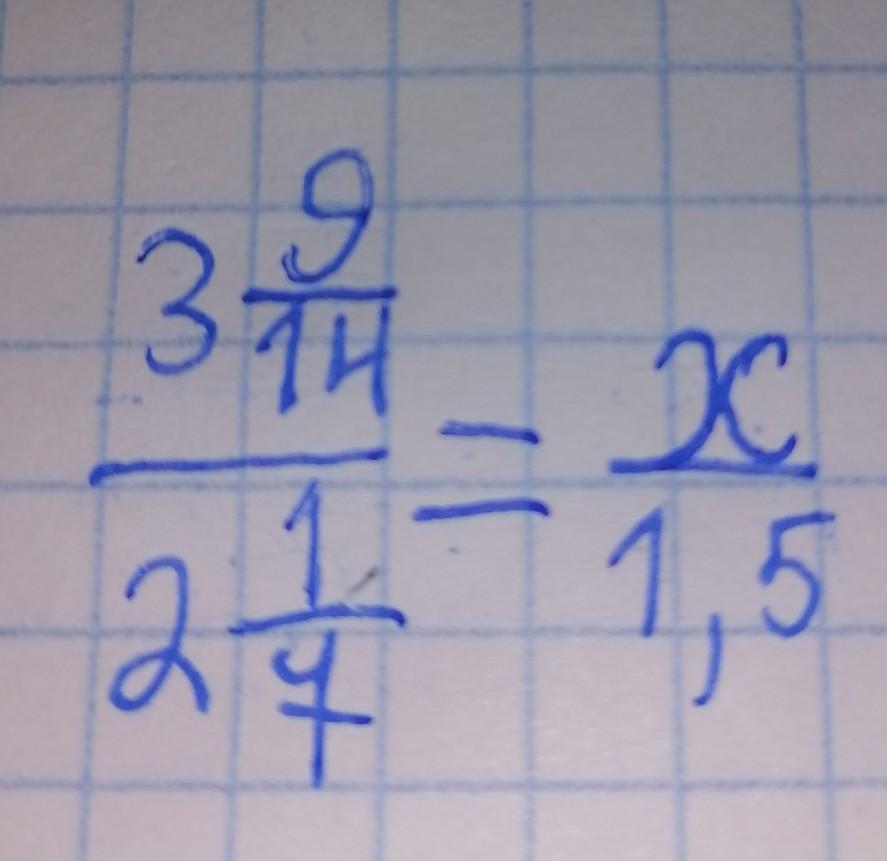 3 9/14 / 2 1/7 = x / 1,5